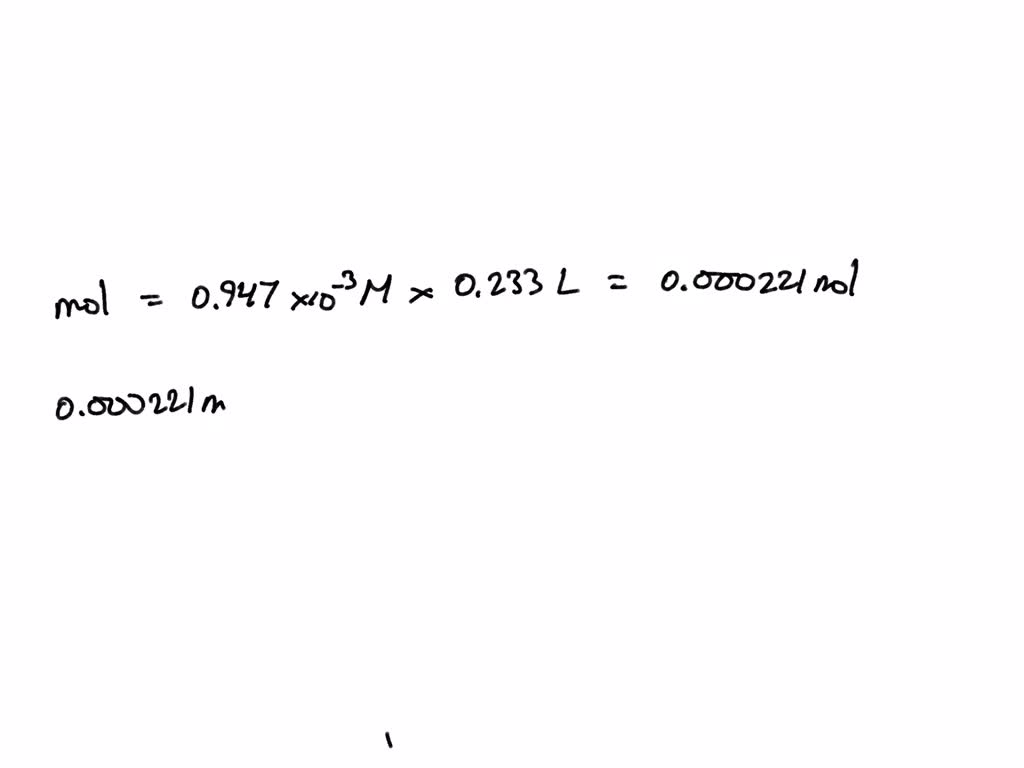 mol = 0.947 ×10⁻³ M × 0.233 L = 0.000221 mol
0.000221 m